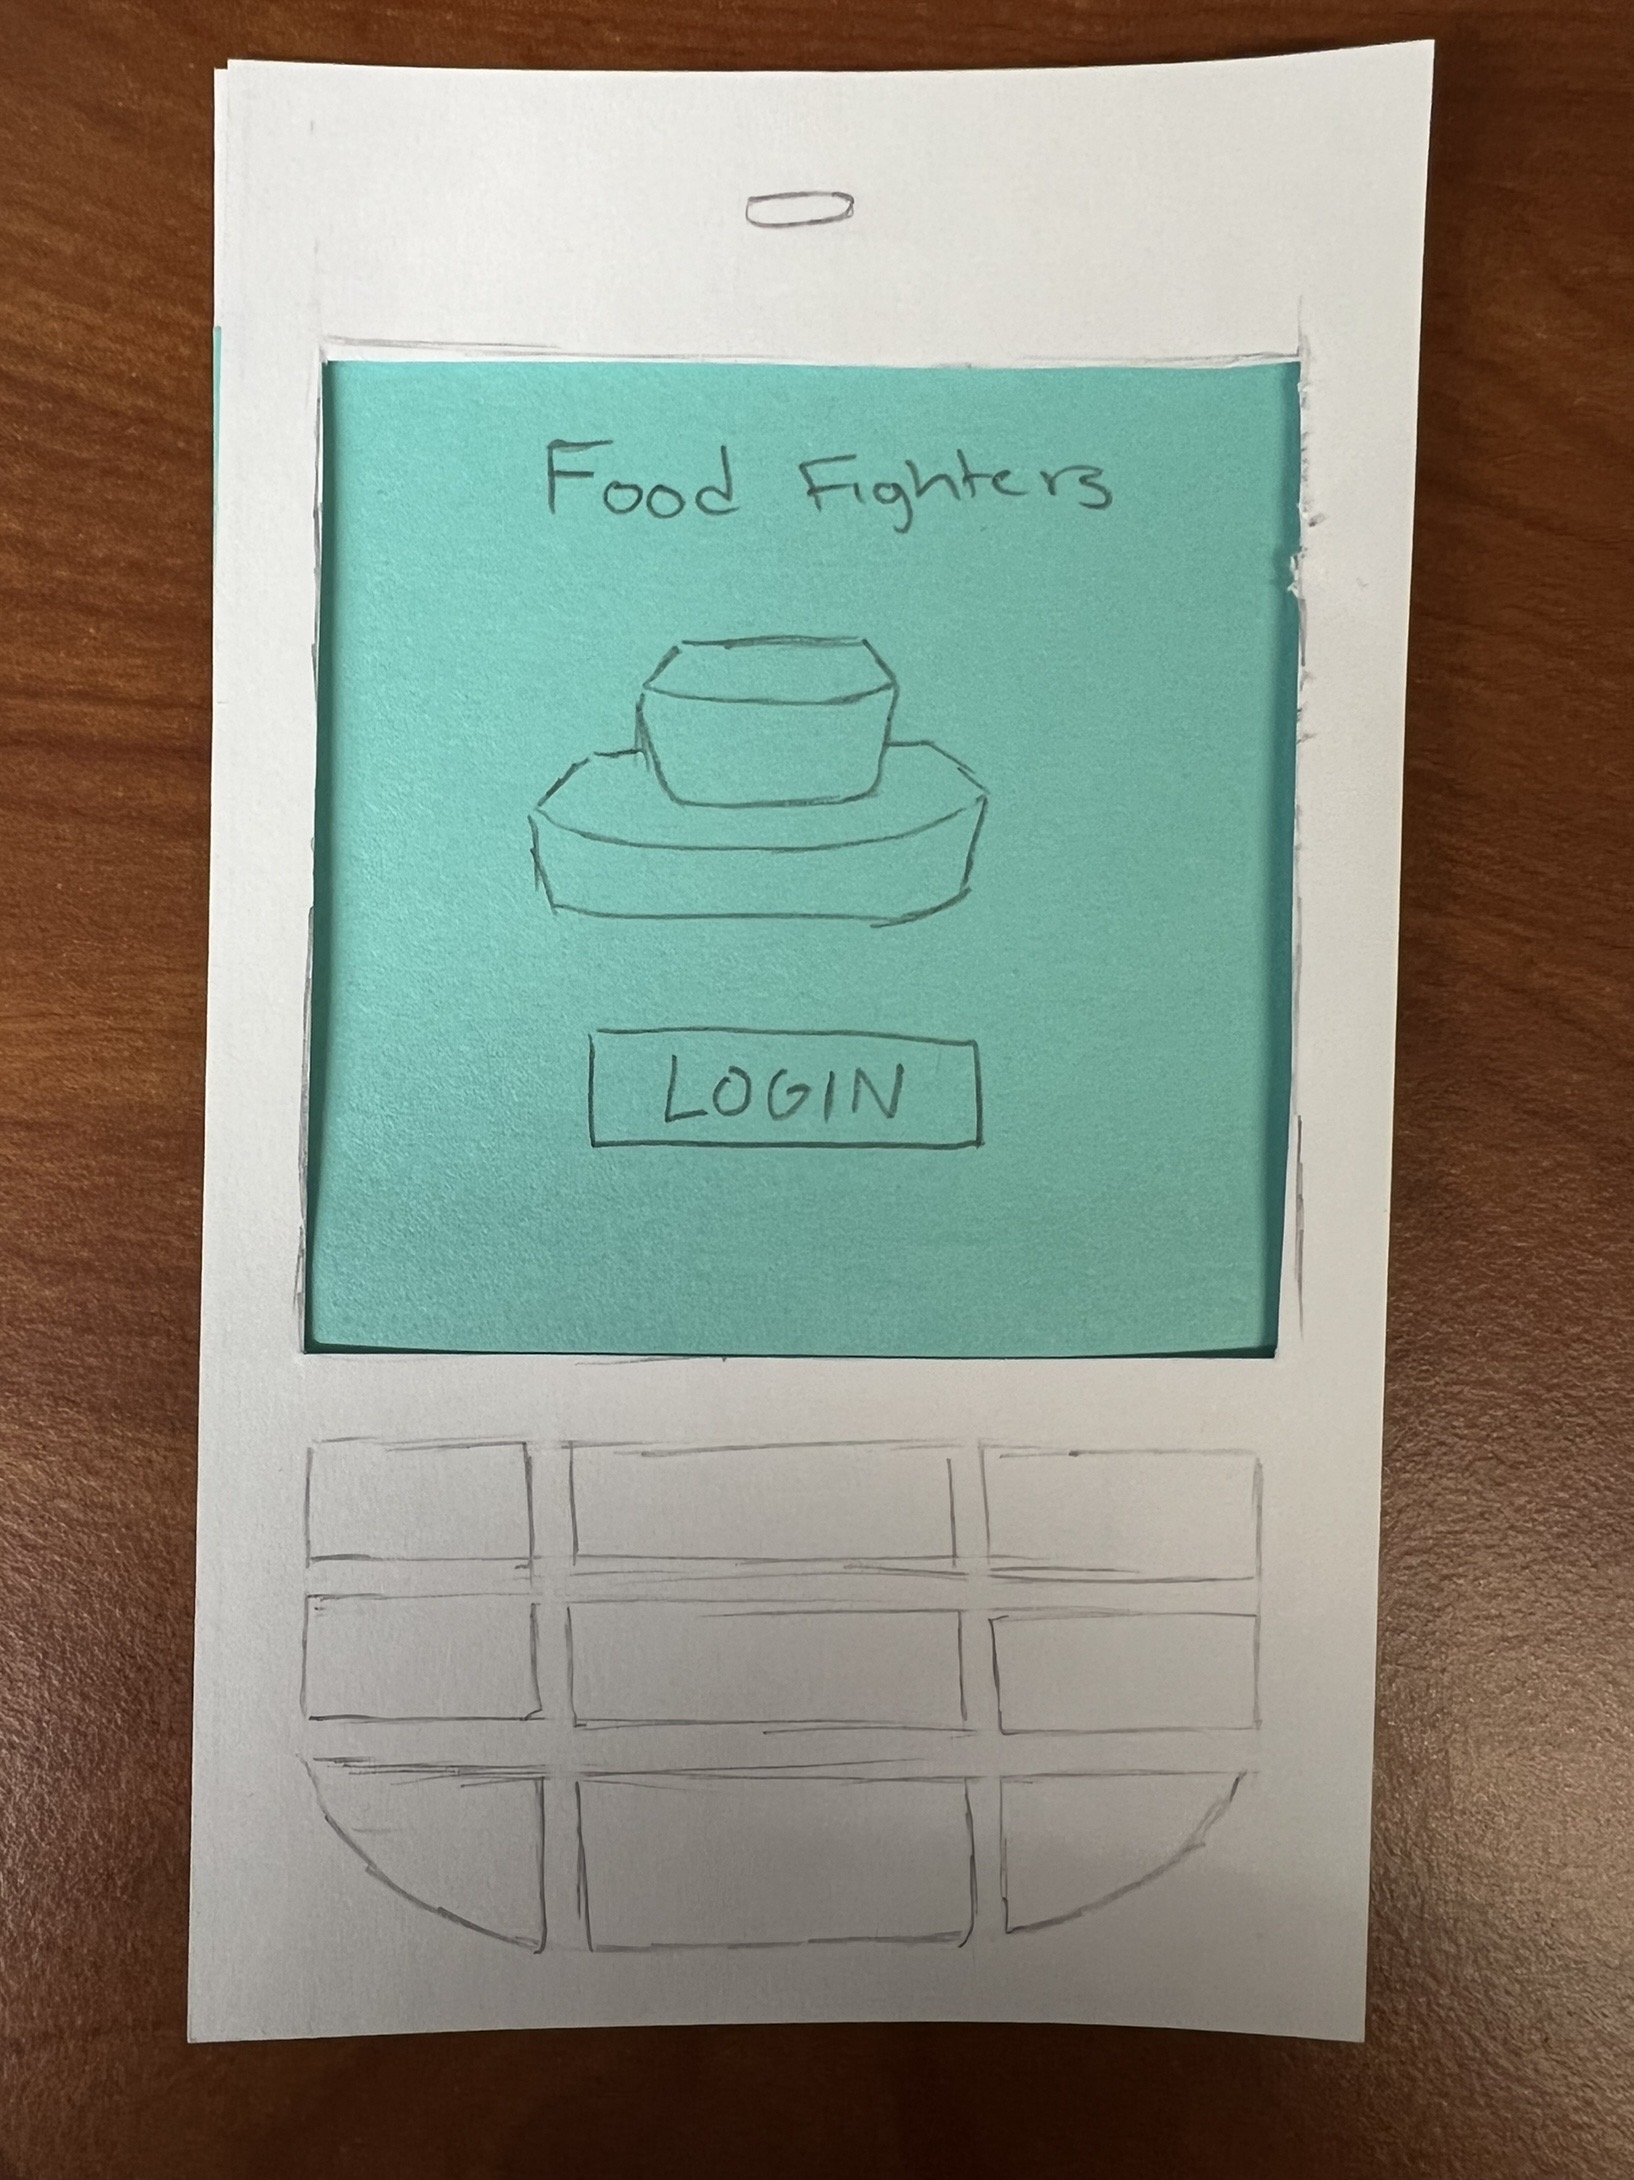 Food Fighters
LOGIN